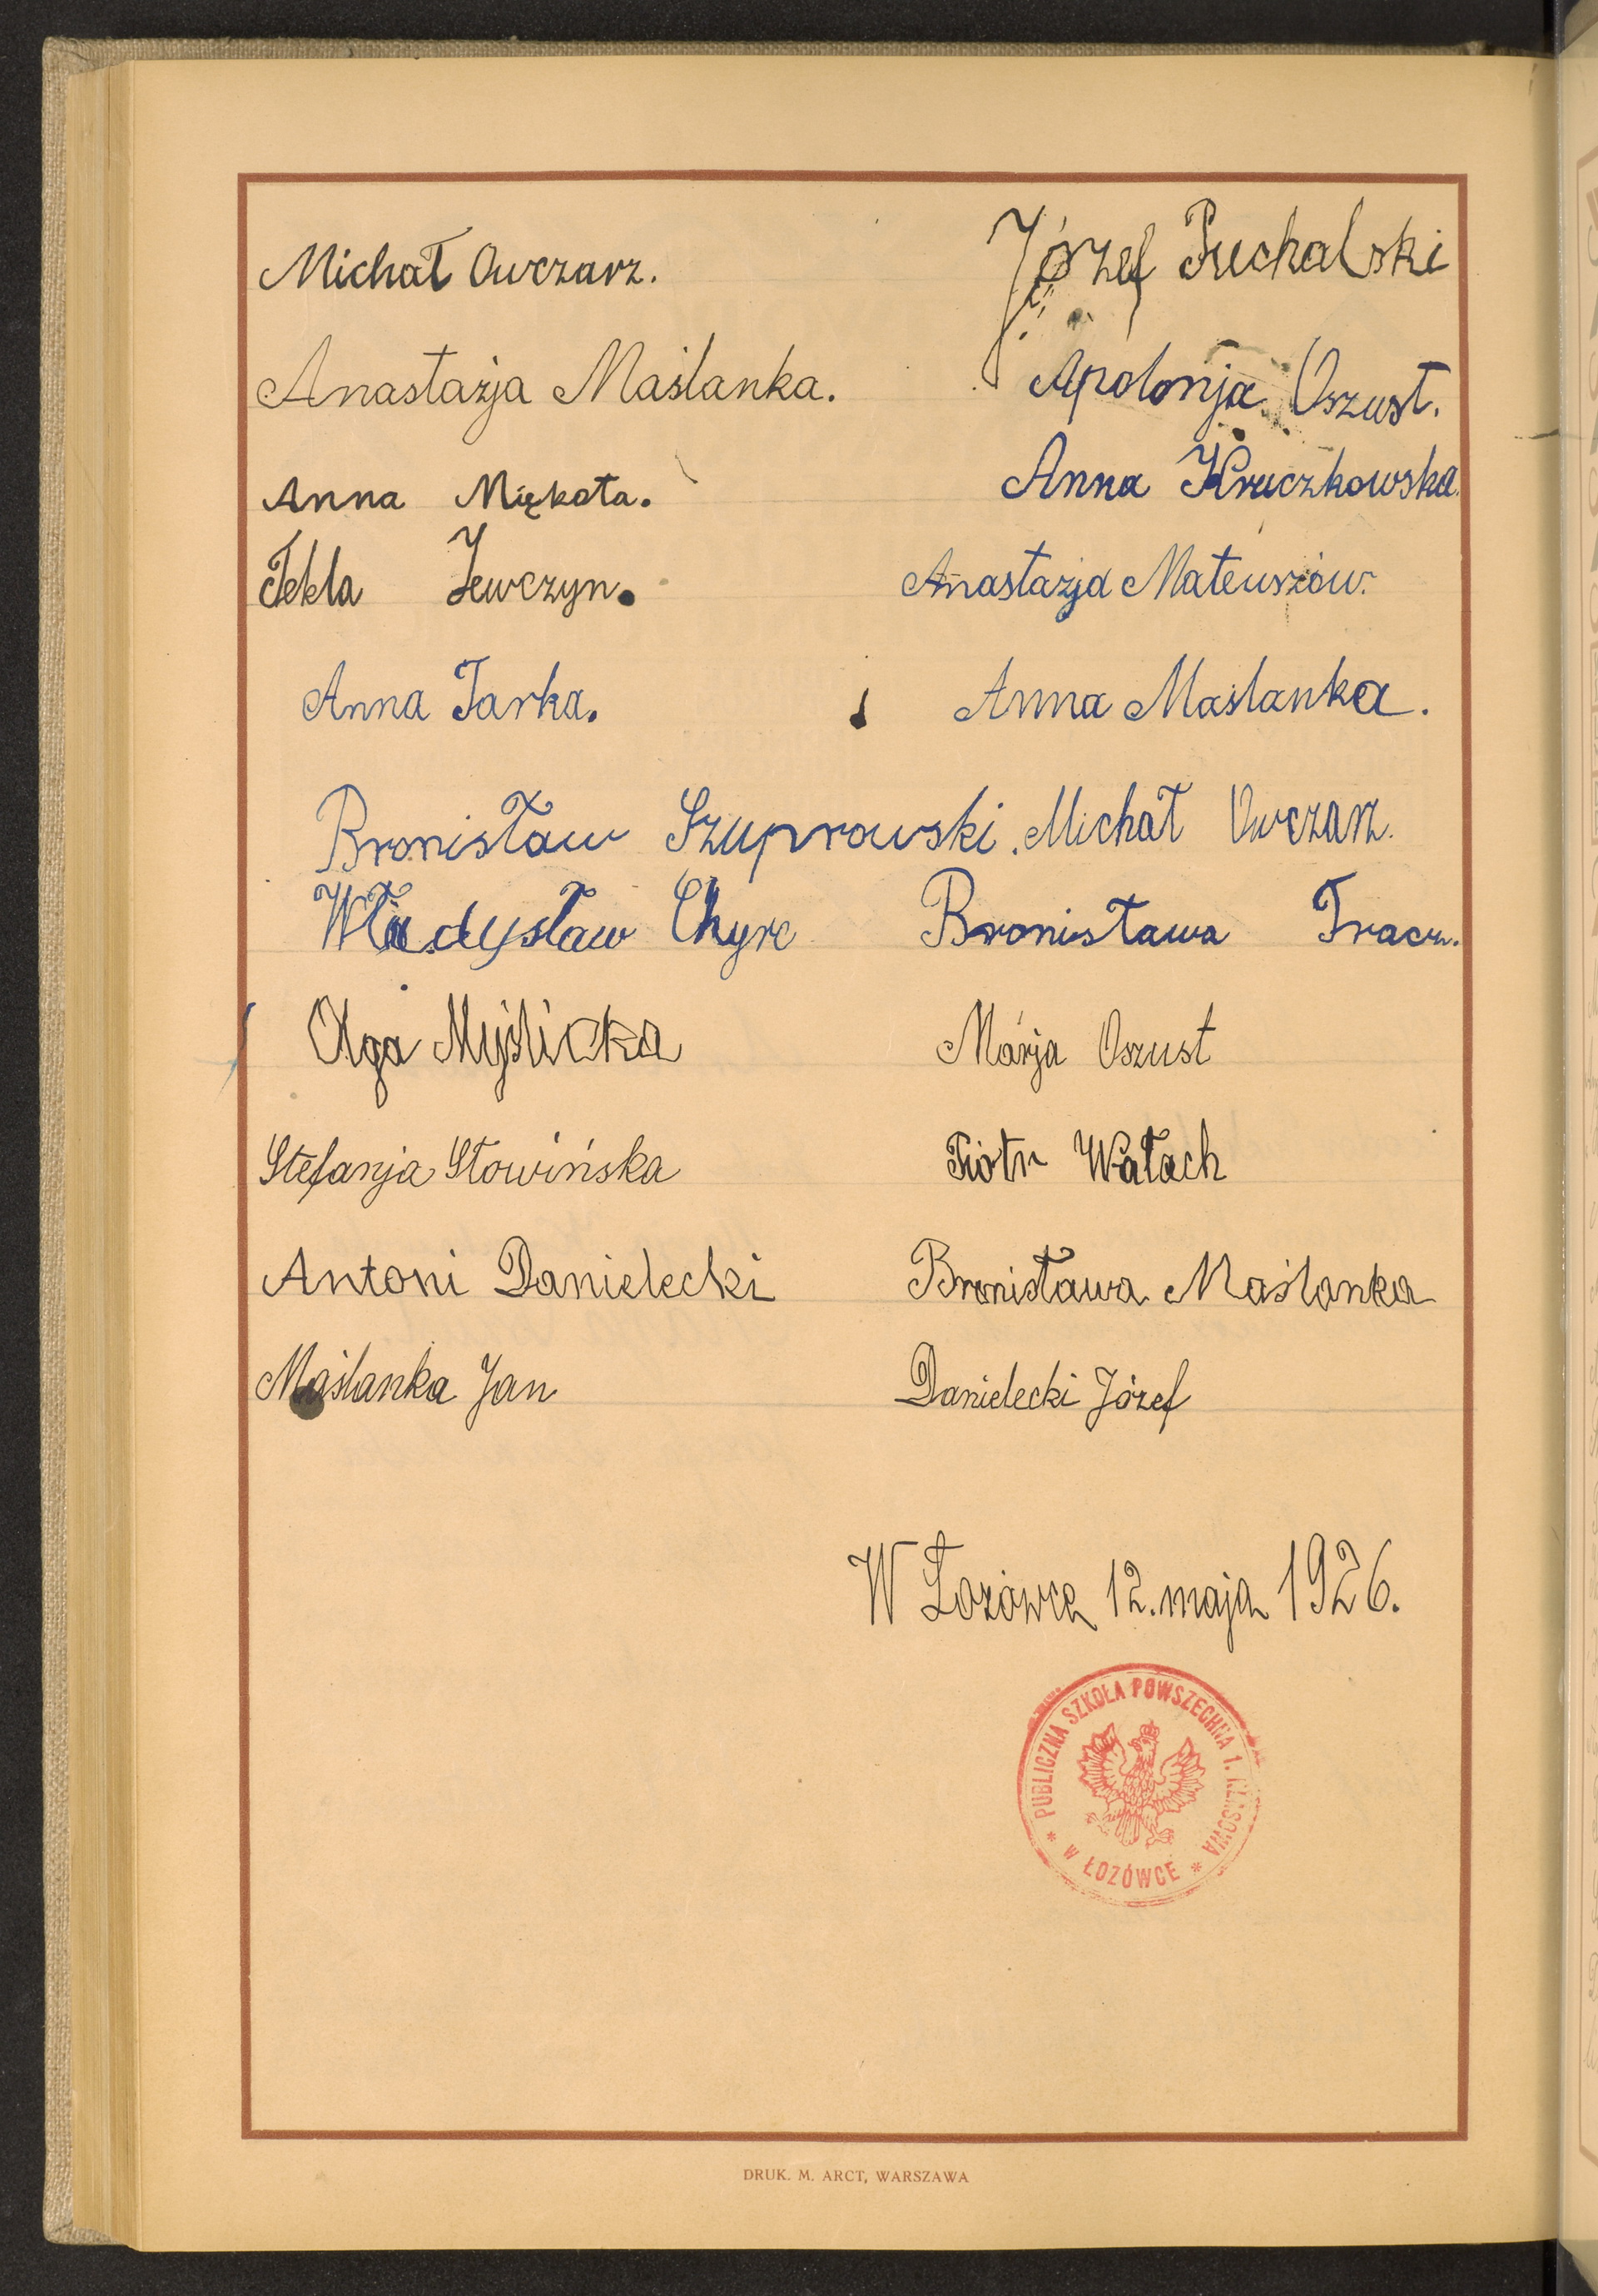 Michał Owczarz. Józef Puchalski
Anastazja Maślanka. Apolonja Oszust.
Anna Miękota. Anna Kruczkowska.
Tekla Jewczyn. Anastazja Mateuszów.
Anna Jarka. Anna Maślanka.
Bronisław Szuprowski. Michał Owczarz.
Władysław Chyrc Bronisława Tracz.
Olga Myślicka Marja Oszust
Stefanja Słowińska Piotr Wałach
Antoni Danielecki Bronisława Maślanka
Maślanka Jan Danielecki Józef
W Łozówce 12. maja 1926.
PUBLICZNA SZKOŁA POWSZECHNA 1. KLASOWA
* W ŁOZÓWCE *
DRUK. M. ARCT, WARSZAWA